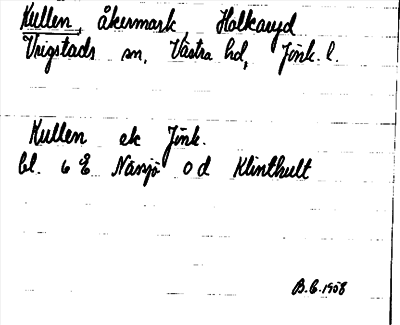 Kullen, åkermark, Holkaryd
Vrigstads sn, Västra hd, Jönk. l.
Kullen ek Jönk.
bl. 6 E Näsjö o d Klinthult
B. E. 1958